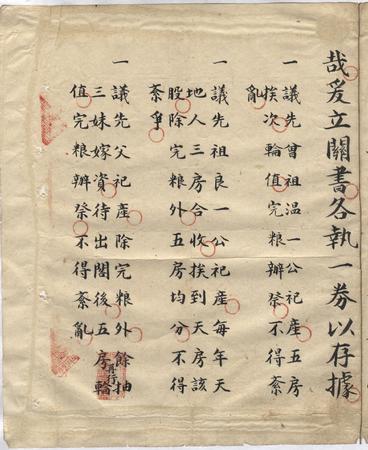 哉爰立關書各執一券以存據
一 議先曾祖温一公祀產五房
挨次輪值完粮辦祭不得紊
亂
一 議先祖良一公祀產每年天
地人三房合收挨到天房該
股除完粮外五房均分不得
紊爭
一 議先父祀產除完粮外餘抽
三妹嫁資待出閣後五房輪
值完粮辦祭不得紊亂